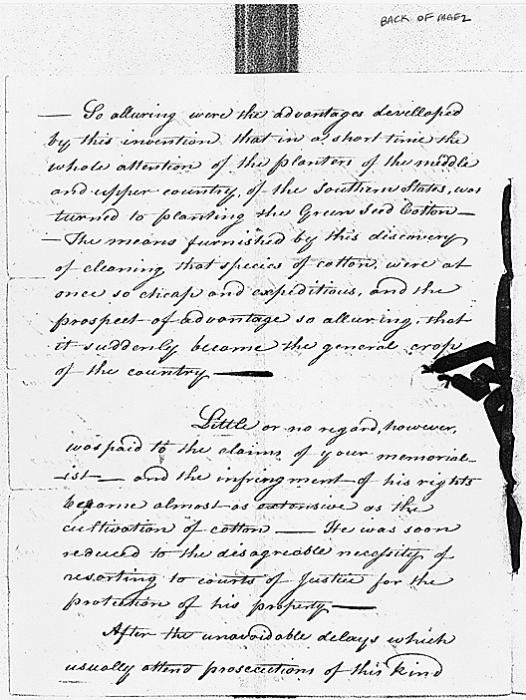 BACK OF PAGE 2
— So alluring were the advantages develloped
by this invention that in a short time the
whole attention of the planters of the middle
and upper country, of the Southern States, was
turned to planting the Green Seed Cotton —
— The means furnished by this discovery
of cleaning that species of cotton, were at
once so cheap and expeditious, and the
prospect of advantage so alluring, that
it suddenly became the general crop
of the country —
Little or no regard, however,
was paid to the claims of your memorial-
-ist — and the infringment of his rights
became almost as extensive as the
cultivation of cotton — He was soon
reduced to the disagreable necessity of
resorting to courts of Justice for the
protection of his property —
After the unavoidable delays which
usually attend prosecutions of this kind